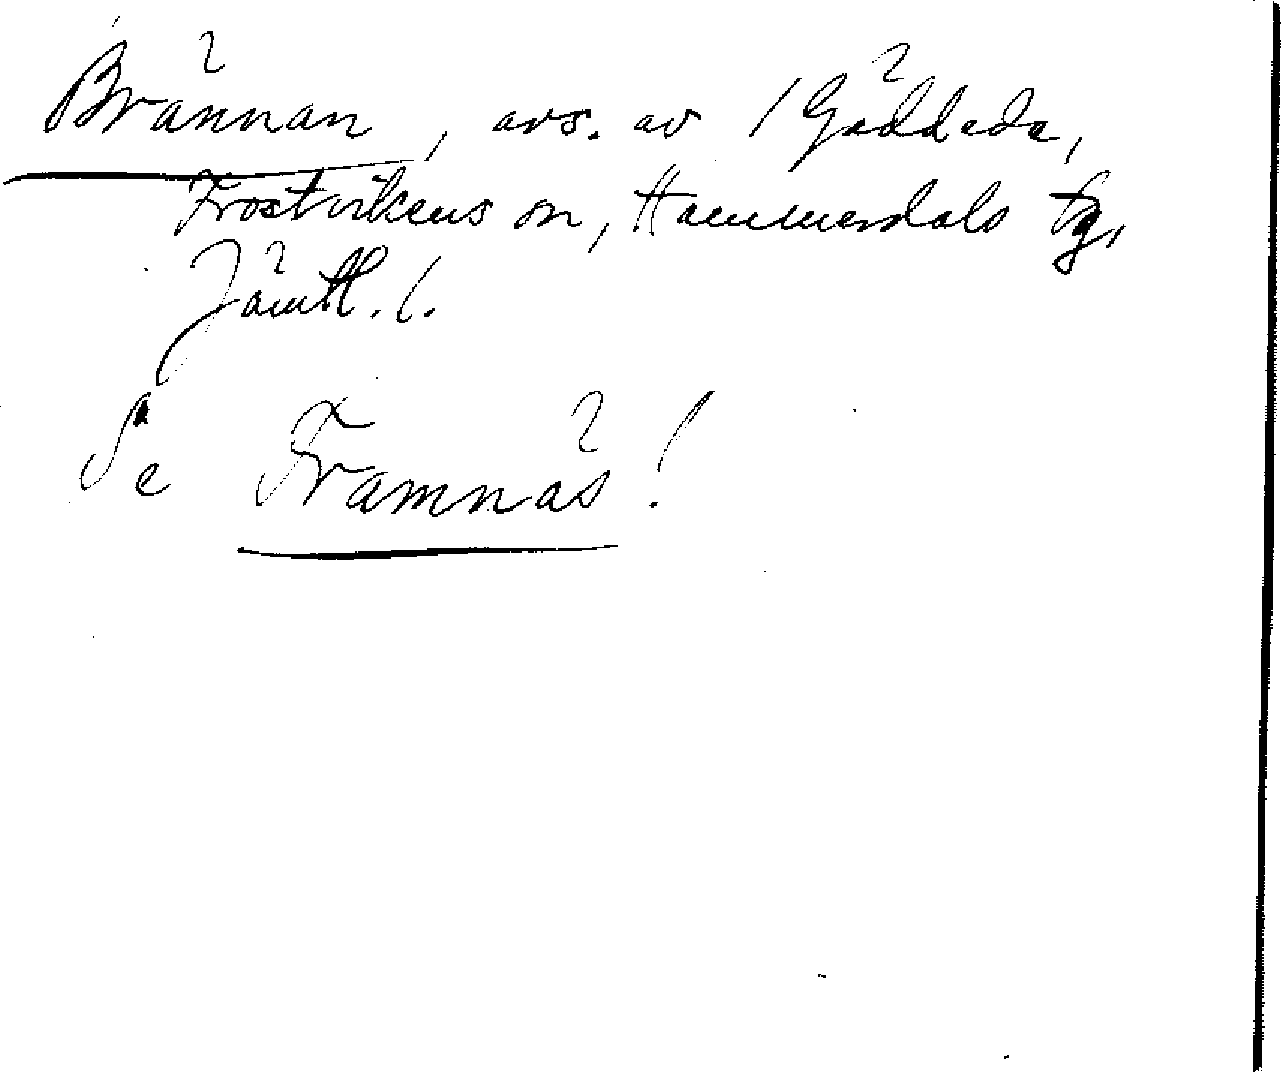 Brännan, avs. av 1 Gäddede,
Frostvikens sn, Hammerdals tg,
Jämtl. l.
Se Framnäs!